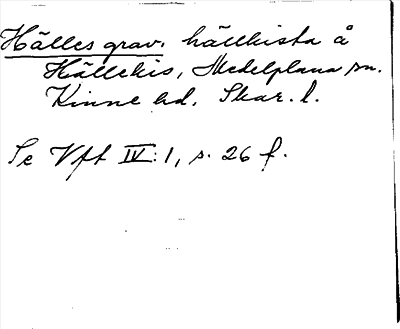 Hälles grav. hällkista å
Hällekis, Medelplana sn.
Kinne hd. Skar. l.
Se Vft IV:1, s. 26 f.